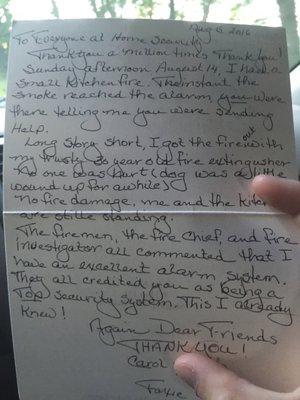 Aug 6, 2016
To Everyone at Home Security
Thank you a million times Thank you!
Sunday afternoon August 14, I had a
small kitchen fire. The instant the
smoke reached the alarm, you were
there telling me you were sending
Help.
Long story short, I got the fire out with
my trusty 30 year old fire extinguisher
No one was hurt (dog was a little
wound up for awhile)
no fire damage, me and the kitchen
are stille standing.
The firemen, the fire chief, and fire
investigator all commented that I
have an excellent alarm system.
They all credited you as being a
Top security system. This I already
knew!
Again Dear Friends
THANK YOU!
Carol